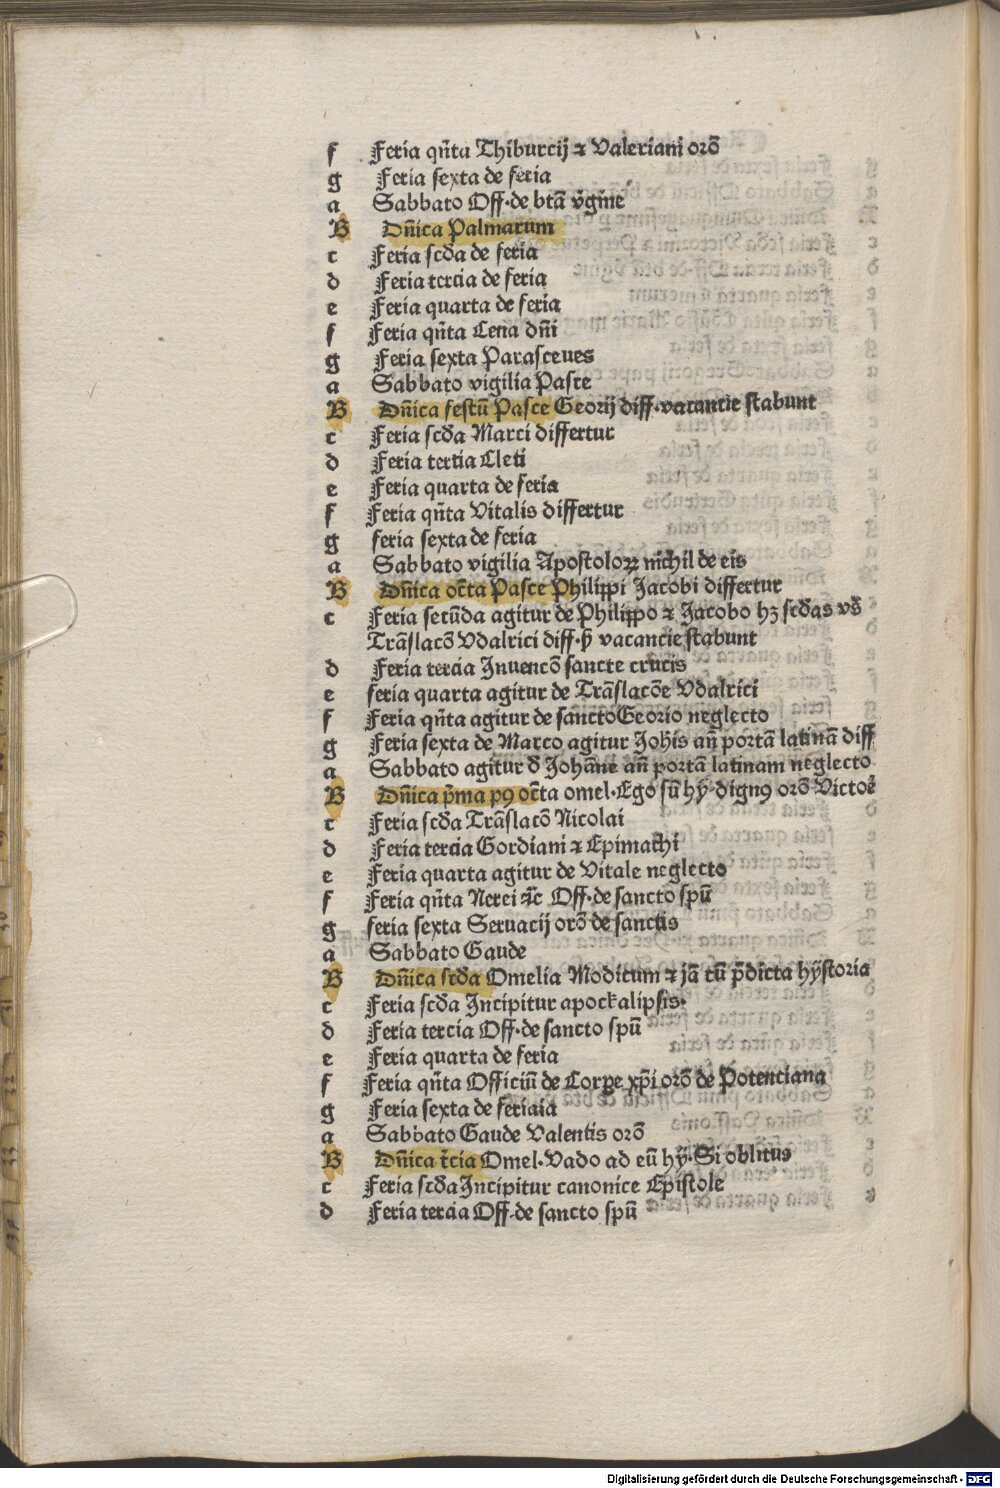 f Feria qñta Thiburcij ⁊ Valeriani orõ
g Feria sexta de feria
a Sabbato Off·de btã v̄gine
B Dñica Palmarum
c Feria scd̄a de feria
d Feria tercia de feria
e Feria quarta de feria
f Feria qñta Cena dñi
g Feria sexta Parasceues
a Sabbato vigilia Pasce
B Dñica festū Pasce Georij diff·vacantie stabunt
c Feria scd̄a Marci differtur
d Feria tertia Cleti
e Feria quarta de feria
f Feria qñta Vitalis differtur
g feria sexta de feria
a Sabbato vigilia Apostoloꝝ nichil de eis
B Dñica oct̄a Pasce Philippi Jacobi differtur
c Feria secūda agitur de Philippo ⁊ Jacobo hꝫ scd̄as vs̄
Trāslacõ Vdalrici diff·p̄ vacancie stabunt
d Feria tercia Inuencõ sancte crucis
e feria quarta agitur de Trāslacõe Vdalrici
f Feria qñta agitur de sancto Georio neglecto
g Feria sexta de Marco agitur Johis an̄ portā latinā diff
a Sabbato agitur d̄ Johāne an̄ portā latinam neglecto
B Dñica p̄ma pꝰ oct̄a omel·Ego sū hȳ·dignꝰ orõ Victoē
c Feria scd̄a Trāslacõ Nicolai
d Feria tercia Gordiani ⁊ Epimachi
e Feria quarta agitur de Vitale neglecto
f Feria qñta Nerei ⁊c̄ Off·de sancto spū
g feria sexta Seruacij orõ de sanctis
a Sabbato Gaude
B Dñica scd̄a Omelia Modicum ⁊ jā cū p̄dicta hȳstoria
c Feria scd̄a Incipitur apockalipsis·
d Feria tercia Off·de sancto spū
e Feria quarta de feria
f Feria qñta Officiū de Corpe xp̄i orõ de Potentiana
g Feria sexta de feriaia
a Sabbato Gaude Valentis orõ
B Dñica t̄cia Omel·Vado ad eū hȳ·Si oblitus
c Feria scd̄a Incipitur canonice Epistole
d Feria tercia Off·de sancto spū
Digitalisierung gefördert durch die Deutsche Forschungsgemeinschaft - DFG